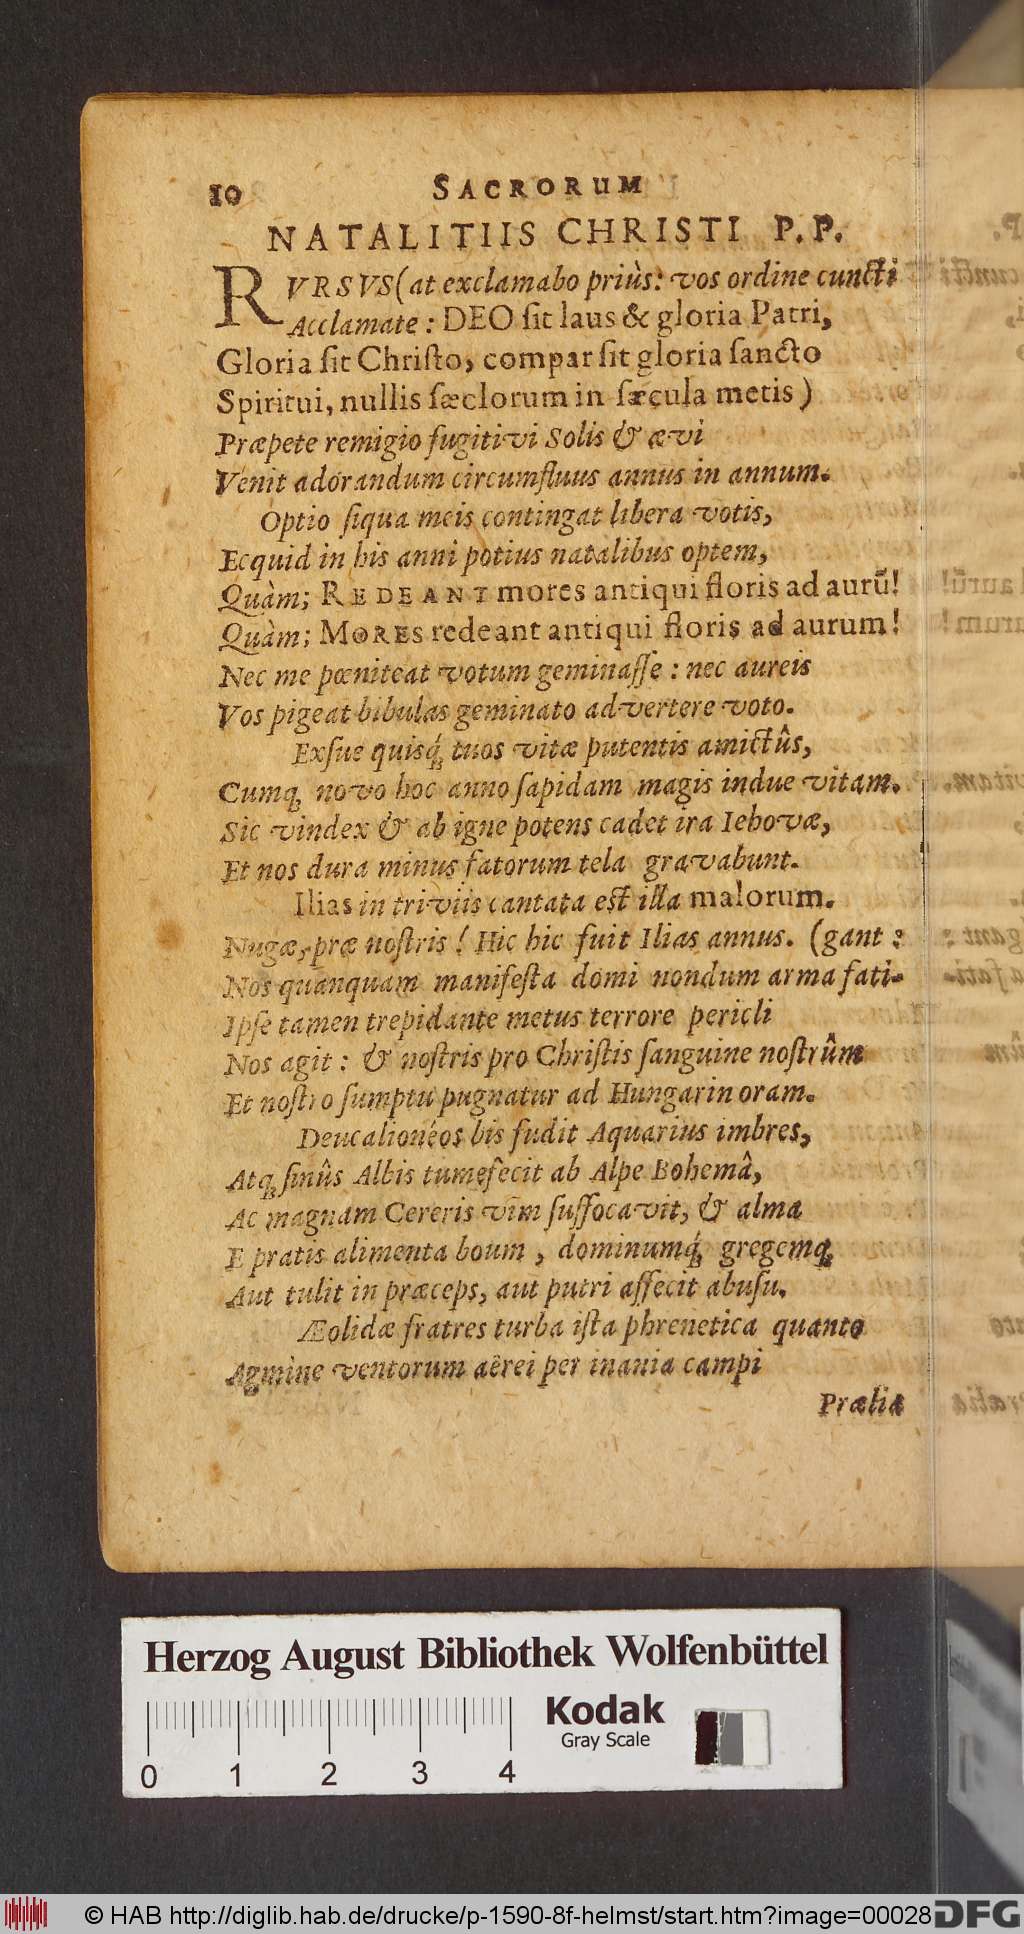 10 SACRORUM
NATALITIIS CHRISTI P. P.
RVRSVS (at exclamabo priùs: vos ordine cuncti
Acclamate: DEO sit laus & gloria Patri,
Gloria sit Christo, compar sit gloria sancto
Spiritui, nullis sæclorum in sæcula metis)
Præpete remigio fugitivi Solis & ævi
Venit adorandum circumfluus annus in annum.
Optio siqua meis contingat libera votis,
Ecquid in his anni potius natalibus optem,
Quàm; REDEANT mores antiqui floris ad aurū!
Quàm; MORES redeant antiqui floris ad aurum!
Nec me pœniteat votum geminasse: nec aureis
Vos pigeat bibulas geminato advertere voto.
Exsue quisq́; tuos vitæ putentis amictûs,
Cumq; novo hoc anno sapidam magis indue vitam.
Sic vindex & ab igne potens cadet ira Iehovæ,
Et nos dura minus fatorum tela gravabunt.
Ilias in triviis cantata est illa malorum.
Nugæ, præ nostris! Hic hic fuit Ilias annus. (gant:
Nos quanquam manifesta domi nondum arma fati-
Ipse tamen trepidante metus terrore pericli
Nos agit: & nostris pro Christis sanguine nostrûm
Et nostro sumptu pugnatur ad Hungarin oram.
Deucalionéos bis fudit Aquarius imbres,
Atq; sinûs Albis tumefecit ab Alpe Bohemâ,
Ac magnam Cereris vim suffocavit, & alma
E pratis alimenta boum, dominumq́; gregemq́;
Aut tulit in præceps, aut putri affecit abusu.
Æolidæ fratres turba ista phrenetica quanto
Agmine ventorum aêrei per inania campi
Prælia
Herzog August Bibliothek Wolfenbüttel
Kodak
Gray Scale
0 1 2 3 4
© HAB http://diglib.hab.de/drucke/p-1590-8f-helmst/start.htm?image=00028
DFG